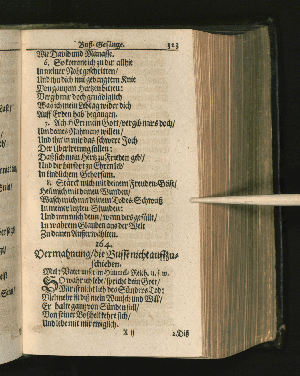 Buß-Gesänge. 323
Wie David und Manasse.
6. So komm ich zu dir allhie
In meiner Noht geschritten/
Und thu dich mit gebeugtem Knie
Von gantzem Hertzen bitten:
Vergib mir doch genädiglich
Was ich mein Lebtag wider dich
Auff Erden hab begangen.
7. Ach HErr mein Gott/ vergib mirs doch/
Um deines Nahmens willen/
Und thu in mir das schwere Joch
Der Ubertretung stillen:
Daß sich mein Hertz zu Frieden geb/
Und dir hinfort zu Ehren leb/
In kindlichem Gehorsam.
8. Stärck mich mit deinem Freuden-Geist/
Heil mich mit deinen Wunden/
Wasch mich mit deinem Todes-Schweiß
In meiner letzten Stunden:
Und nimm mich denn/ wenn dirs gefällt/
In wahrem Glauben aus der Welt
Zu deinen Außerwählten.
164.
Vermahnung/ die Busse nicht auffzu-
schieben.
Mel: Vater unser im Himmels Reich. u. s. w.
SO wahr ich lebe/ spricht dein Gott/
Mir ist nicht lieb des Sünders Tod:
Vielmehr ist diß mein Wunsch und Will/
Er halte gantz von Sünden still/
Von seiner Boßheit kehre sich/
Und lebe mit mir ewiglich.
2. Diß